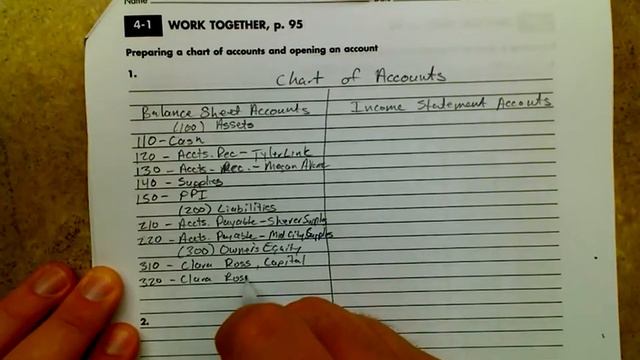 Name
4-1 WORK TOGETHER, p. 95
Preparing a chart of accounts and opening an account
1.
Chart of Accounts
Balance Sheet Accounts
Income Statement Accouts
(100) Assets
110 - Cash
120 - Accts. Rec - Tyler Link
130 - Accts - Rec. - Megan
140 - Supplies
150 - PPI
(200) Liabilities
210 - Accts. Payable - Shaver Supply
220 - Accts. Payable - Mid City Supplies
(300) Owner's Equity
310 - Clara Ross, Capital
320 - Clara Ross
2.